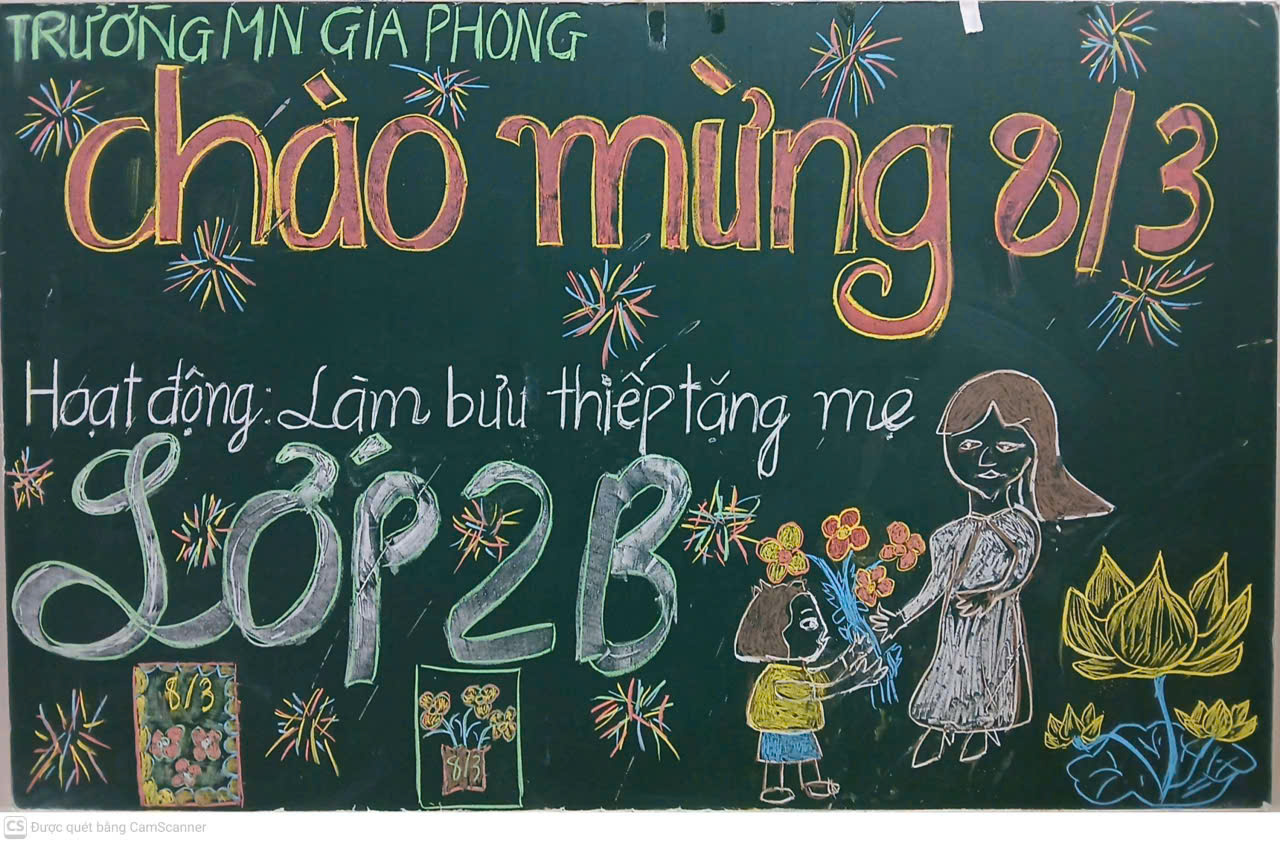 TRƯỜNG MN GIA PHONG
chào mừng 8/3
Hoạt động: Làm bưu thiếp tặng mẹ
LỚP 2B
8/3
8/3
CS Được quét bằng CamScanner